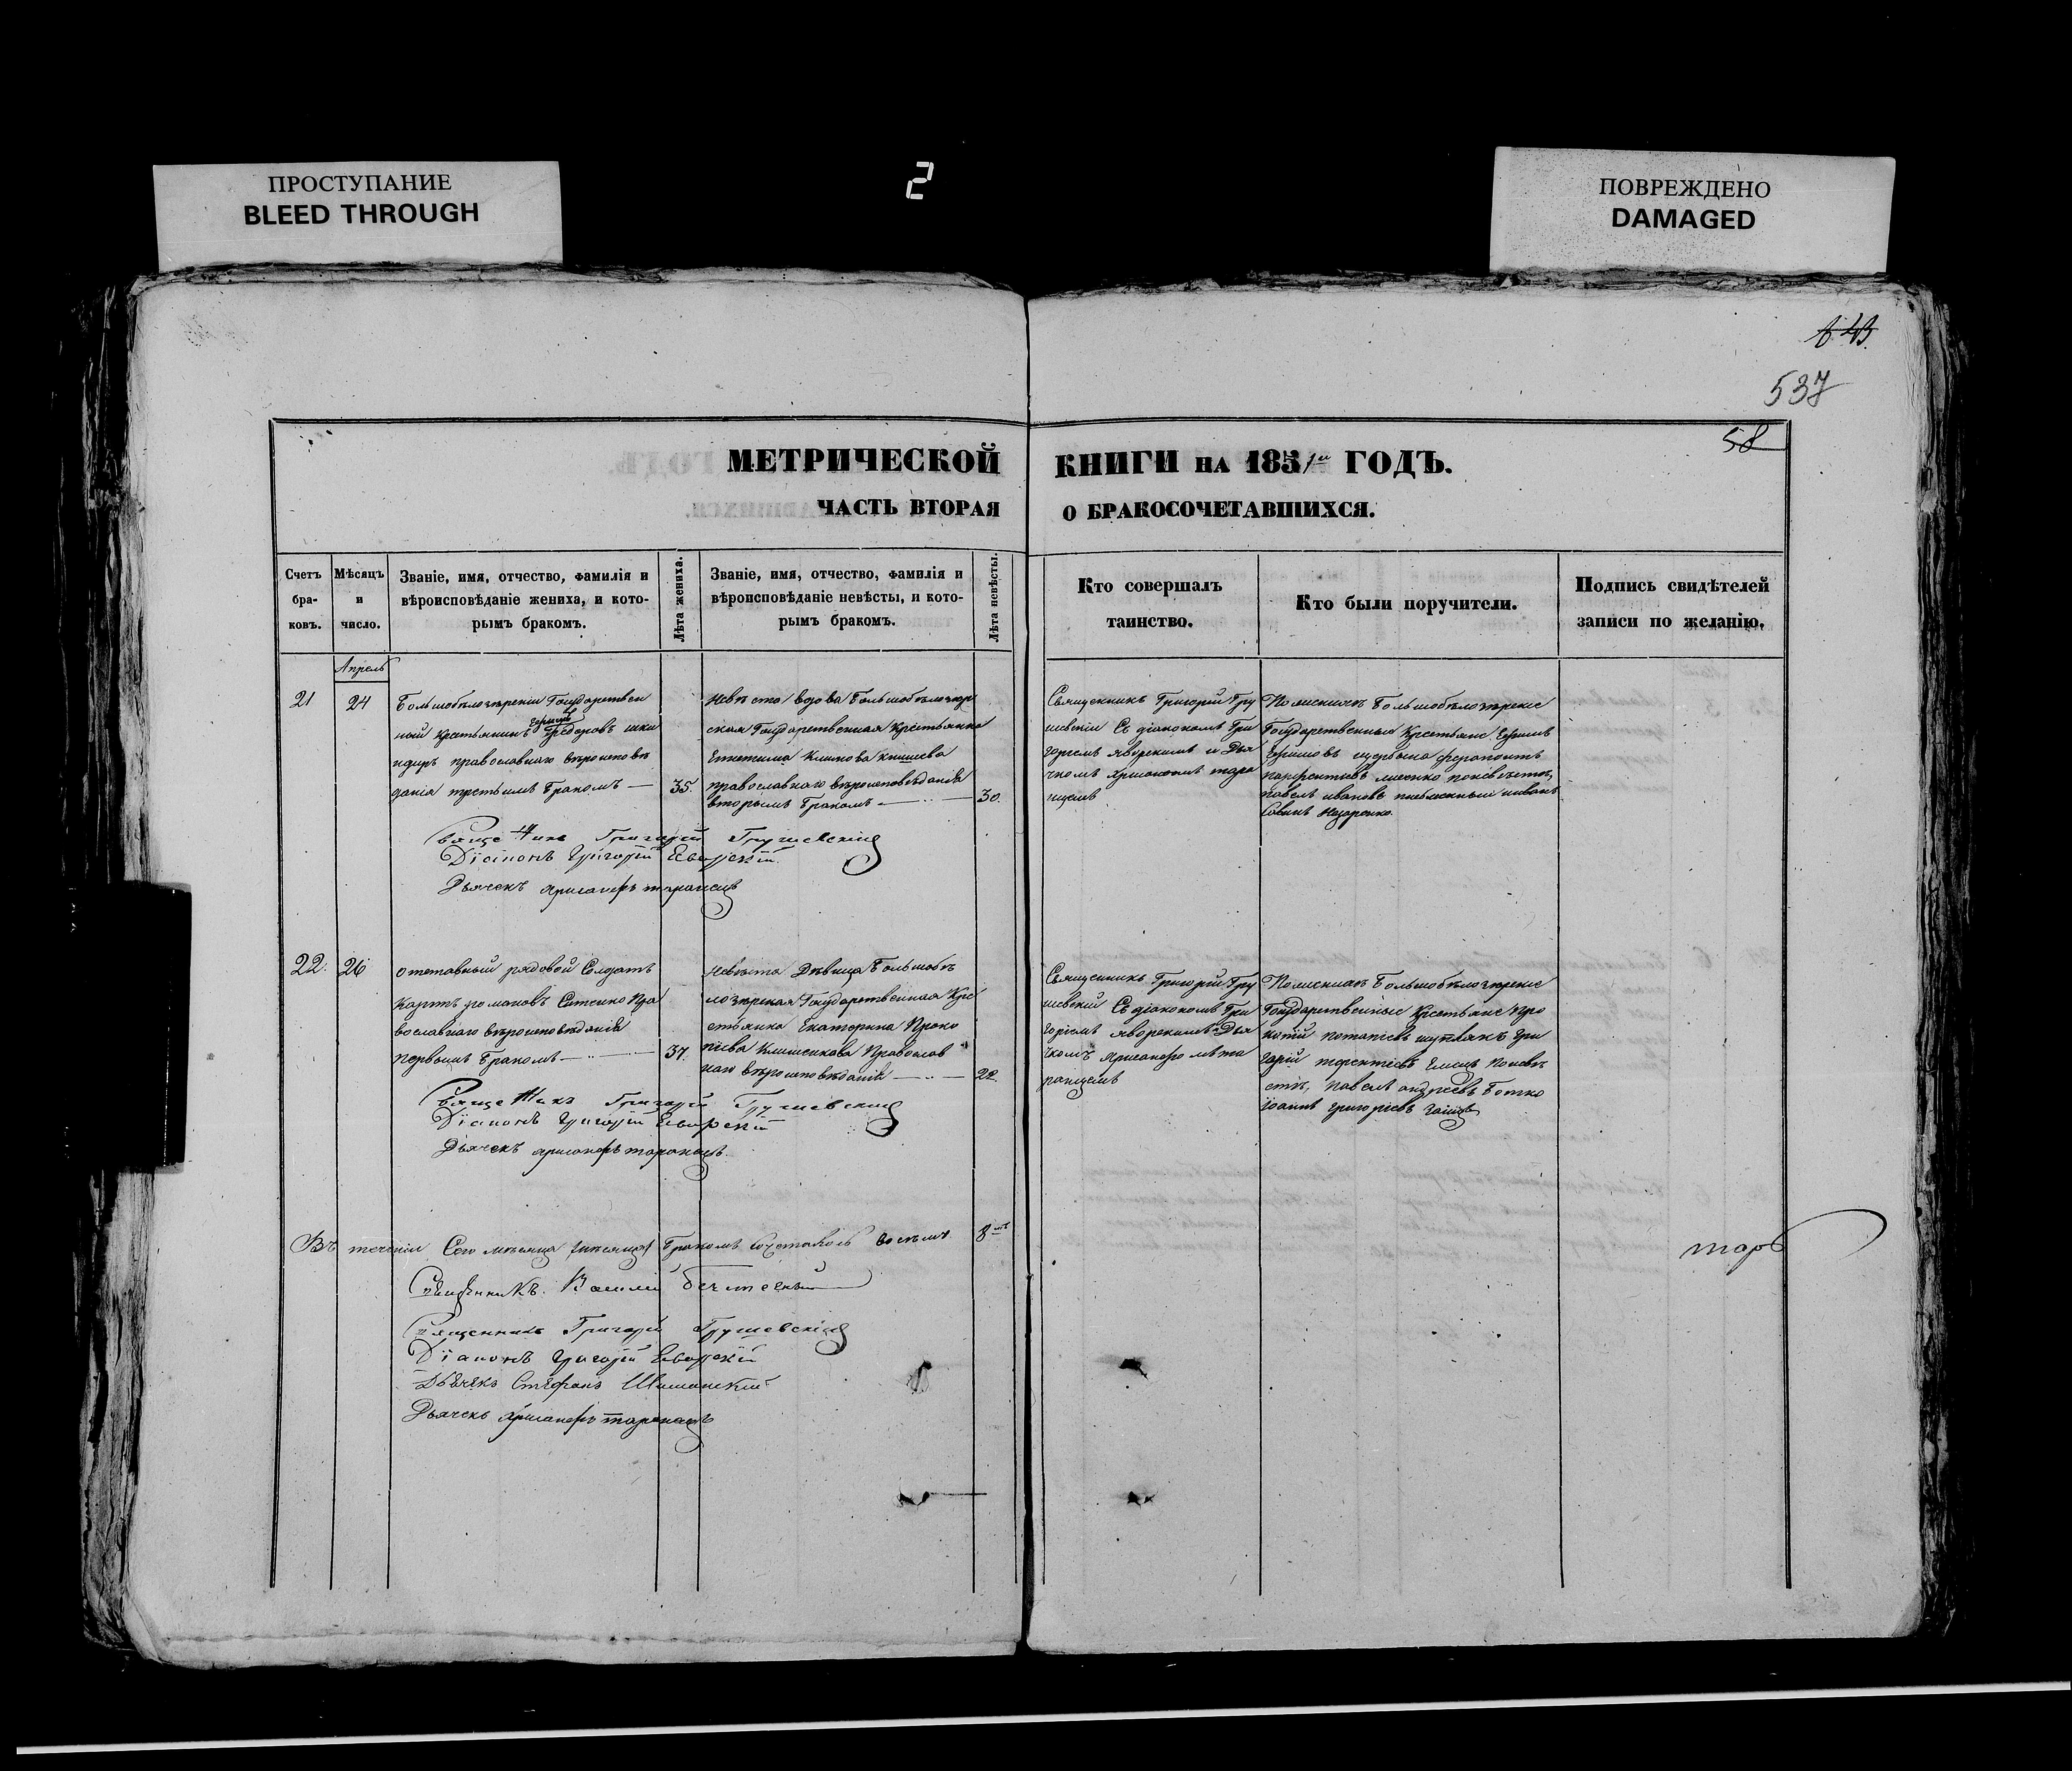 ПРОСТУПАНИЕ
BLEED THROUGH
2
ПОВРЕЖДЕНО
DAMAGED
537
58
МЕТРИЧЕСКОЙ КНИГИ НА 1851 ГОДЪ.
ЧАСТЬ ВТОРАЯ О БРАКОСОЧЕТАВШИХСЯ.
Счетъ бра-ковъ.
Мѣсяцъ и число.
Званіе, имя, отчество, фамилія и
вѣроисповѣданіе жениха, и кото-
рымъ бракомъ.
Лѣта жениха.
Званіе, имя, отчество, фамилія и
вѣроисповѣданіе невѣсты, и кото-
рымъ бракомъ.
Лѣта невѣсты.
Кто совершалъ
таинство.
Кто были поручители.
Подпись свидѣтелей
записи по желанію.
Апрель
21
24
Большобѣлозерскій Государствен
ный крестьянинъ Федоровъ
православнаго вѣроисповѣ
данія третьимъ бракомъ
35.
Невѣста вдова Большобѣлозер
ская Государственная крестьянка
Климова
православнаго вѣроисповѣданія
вторымъ бракомъ
30.
Священникъ Григорій Гру
шевскій Съ діакономъ Гри
горіемъ Яворскимъ и Дья
чкомъ Хрисанфомъ тара
нцемъ
Большобѣлозерскіе
Государственные Крестьяне Ефимъ
Ефимовъ
по невѣстѣ,
павелъ ивановъ
Назаренко.
Священникъ Григорій Грушевскій
Діаконъ Григорій Яворскій
Дьячекъ Хрисанфъ таранецъ
22.
26
отставный рядовой Солдатъ
романовъ Ситенко Пра
вославнаго вѣроисповѣданія
первымъ бракомъ
37.
Невѣста Дѣвица Большобѣ
лозерская Государственная Кре
стьянка Екатерина Проко
піева Клименкова Православ
наго вѣроисповѣданія
22.
Священникъ Григорій Гру
шевскій Съ діакономъ Гри
горіемъ Яворскимъ Дья
чкомъ Хрисанфомъ та
ранцемъ
Большобѣлозерскіе
Государственные Крестьяне Про
копій потапіевъ Гри
горій терентіевъ по невѣ
стѣ, павелъ андреевъ Ботко
іоаннъ григоріевъ Заіицъ
Священникъ Григорій Грушевскій
Діаконъ Григорій Яворскій
Дьячекъ Хрисанфъ таранецъ.
Въ теченіи Сего мѣсяца бракомъ Сочеталось восемь. 8
Священникъ Василій
Священникъ Григорій Грушевскій
Діаконъ Григорій Яворскій
Дьячекъ Стефанъ Шиманскій
Дьячекъ Хрисанфъ таранецъ